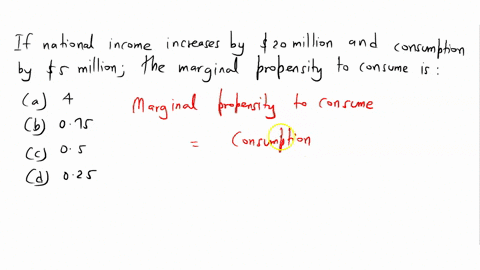 If national income increases by $20 million and consumption
by $5 million; the marginal propensity to consume is:
(a) 4
Marginal propensity to consume
(b) 0.75
= Consumption
(c) 0.5
(d) 0.25